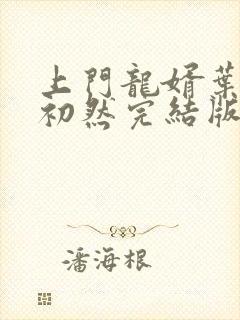 上門龍婿葉
初然完結版
潘海根